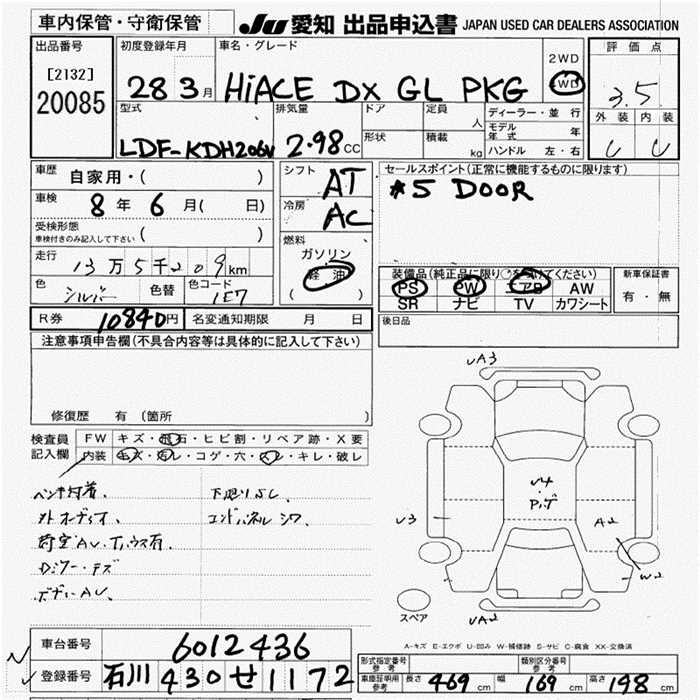 車内保管・守衛保管
JU 愛知 出品申込書 JAPAN USED CAR DEALERS ASSOCIATION
出品番号
[2132]
20085
初度登録年月
28 3月
車名・グレード
HiACE DX GL PKG
2WD
4WD
評価点
3.5
外装 内装
U U
型式
LDF-KDH206V
排気量
2.98CC
ドア
形状
定員
人
積載
kg
ディーラー・並行
モデル年式 年
ハンドル 左・右
車歴
自家用・( )
車検
8年 6月( 日)
受検形態
車検付きのみ記入して下さい ( )
走行
13万5千209km
色
シルバー
色替
色コード
1E7
R券
10840円
名変通知期限 月 日
シフト
AT
冷房
AC
燃料
ガソリン
軽油
( )
セールスポイント(正常に機能するものに限ります)
#5 DOOR
装備品(純正品に限り○を付けてください)
PS PW エアB AW
SR ナビ TV カワシート
新車保証書
有・無
後日品
注意事項申告欄(不具合内容等は具体的に記入して下さい)
修復歴 有(箇所
検査員
記入欄
FW キズ・飛石・ヒビ割・リペア跡・X要
内装 キズ・汚レ・コゲ・穴・スレ・キレ・破レ
下廻りサビ、
外オーディオ、
エンドパネルシワ、
ボデーAU、
UA3
U4
U3
A2
W2
UA2
スペア
A-キズ E-エクボ U-凹み W-補修跡 S-サビ C-腐食 XX-交換済
車台番号
6012436
登録番号
石川 430 せ 1172
形式指定番号
参考
類別区分番号
参考
車庫証明用
参考
長さ 469cm 幅 169cm 高さ 198cm